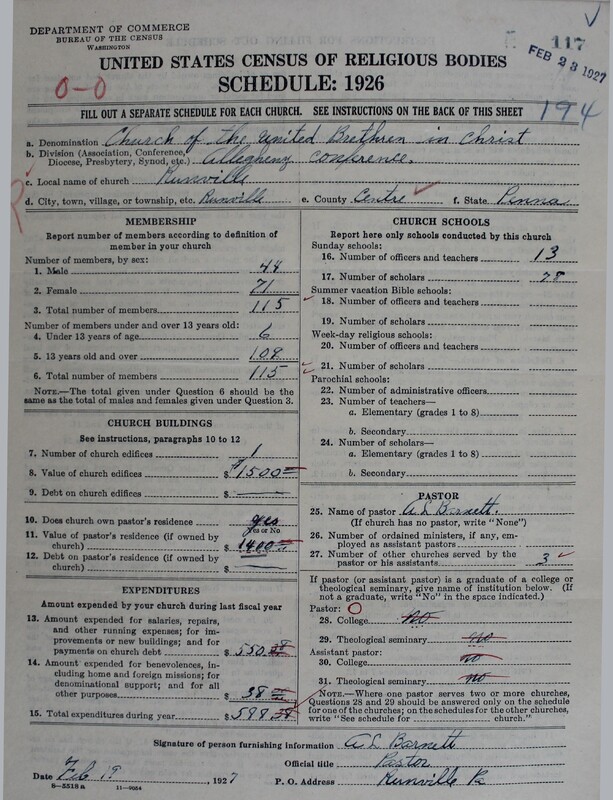 DEPARTMENT OF COMMERCE
BUREAU OF THE CENSUS
WASHINGTON
117
FEB 23 1927
UNITED STATES CENSUS OF RELIGIOUS BODIES
SCHEDULE: 1926
0-0
FILL OUT A SEPARATE SCHEDULE FOR EACH CHURCH. SEE INSTRUCTIONS ON THE BACK OF THIS SHEET
194
a. Denomination Church of the United Brethren in Christ
b. Division (Association, Conference, Diocese, Presbytery, Synod, etc.) Allegheny Conference.
c. Local name of church Runville
d. City, town, village, or township, etc. Runville e. County Centre f. State Penna
MEMBERSHIP
Report number of members according to definition of member in your church
Number of members, by sex:
1. Male 44
2. Female 71
3. Total number of members 115
Number of members under and over 13 years old:
4. Under 13 years of age 6
5. 13 years old and over 109
6. Total number of members 115
NOTE.—The total given under Question 6 should be the same as the total of males and females given under Question 3.
CHURCH BUILDINGS
See instructions, paragraphs 10 to 12
7. Number of church edifices 1
8. Value of church edifices $1500
9. Debt on church edifices $
10. Does church own pastor's residence yes
Yes or No
11. Value of pastor's residence (if owned by church) $1400
12. Debt on pastor's residence (if owned by church) $
EXPENDITURES
Amount expended by your church during last fiscal year
13. Amount expended for salaries, repairs, and other running expenses; for improvements or new buildings; and for payments on church debt $ 550
14. Amount expended for benevolences, including home and foreign missions; for denominational support; and for all other purposes $ 38
15. Total expenditures during year $ 598
CHURCH SCHOOLS
Report here only schools conducted by this church
Sunday schools:
16. Number of officers and teachers 13
17. Number of scholars 78
Summer vacation Bible schools:
18. Number of officers and teachers
19. Number of scholars
Week-day religious schools:
20. Number of officers and teachers
21. Number of scholars
Parochial schools:
22. Number of administrative officers
23. Number of teachers—
a. Elementary (grades 1 to 8)
b. Secondary
24. Number of scholars—
a. Elementary (grades 1 to 8)
b. Secondary
PASTOR
25. Name of pastor A L Barnett.
(If church has no pastor, write "None")
26. Number of ordained ministers, if any, employed as assistant pastors
27. Number of other churches served by the pastor or his assistants 3
If pastor (or assistant pastor) is a graduate of a college or theological seminary, give name of institution below. (If not a graduate, write "No" in the space indicated.)
Pastor: O
28. College no
29. Theological seminary no
Assistant pastor:
30. College no
31. Theological seminary no
NOTE.—Where one pastor serves two or more churches, Questions 28 and 29 should be answered only on the schedule for one of the churches; on the schedules for the other churches, write "See schedule for church."
Signature of person furnishing information A L Barnett
Official title Pastor
Date Feb 19, 1927 P. O. Address Runville Pa
8-5518a 11-9054